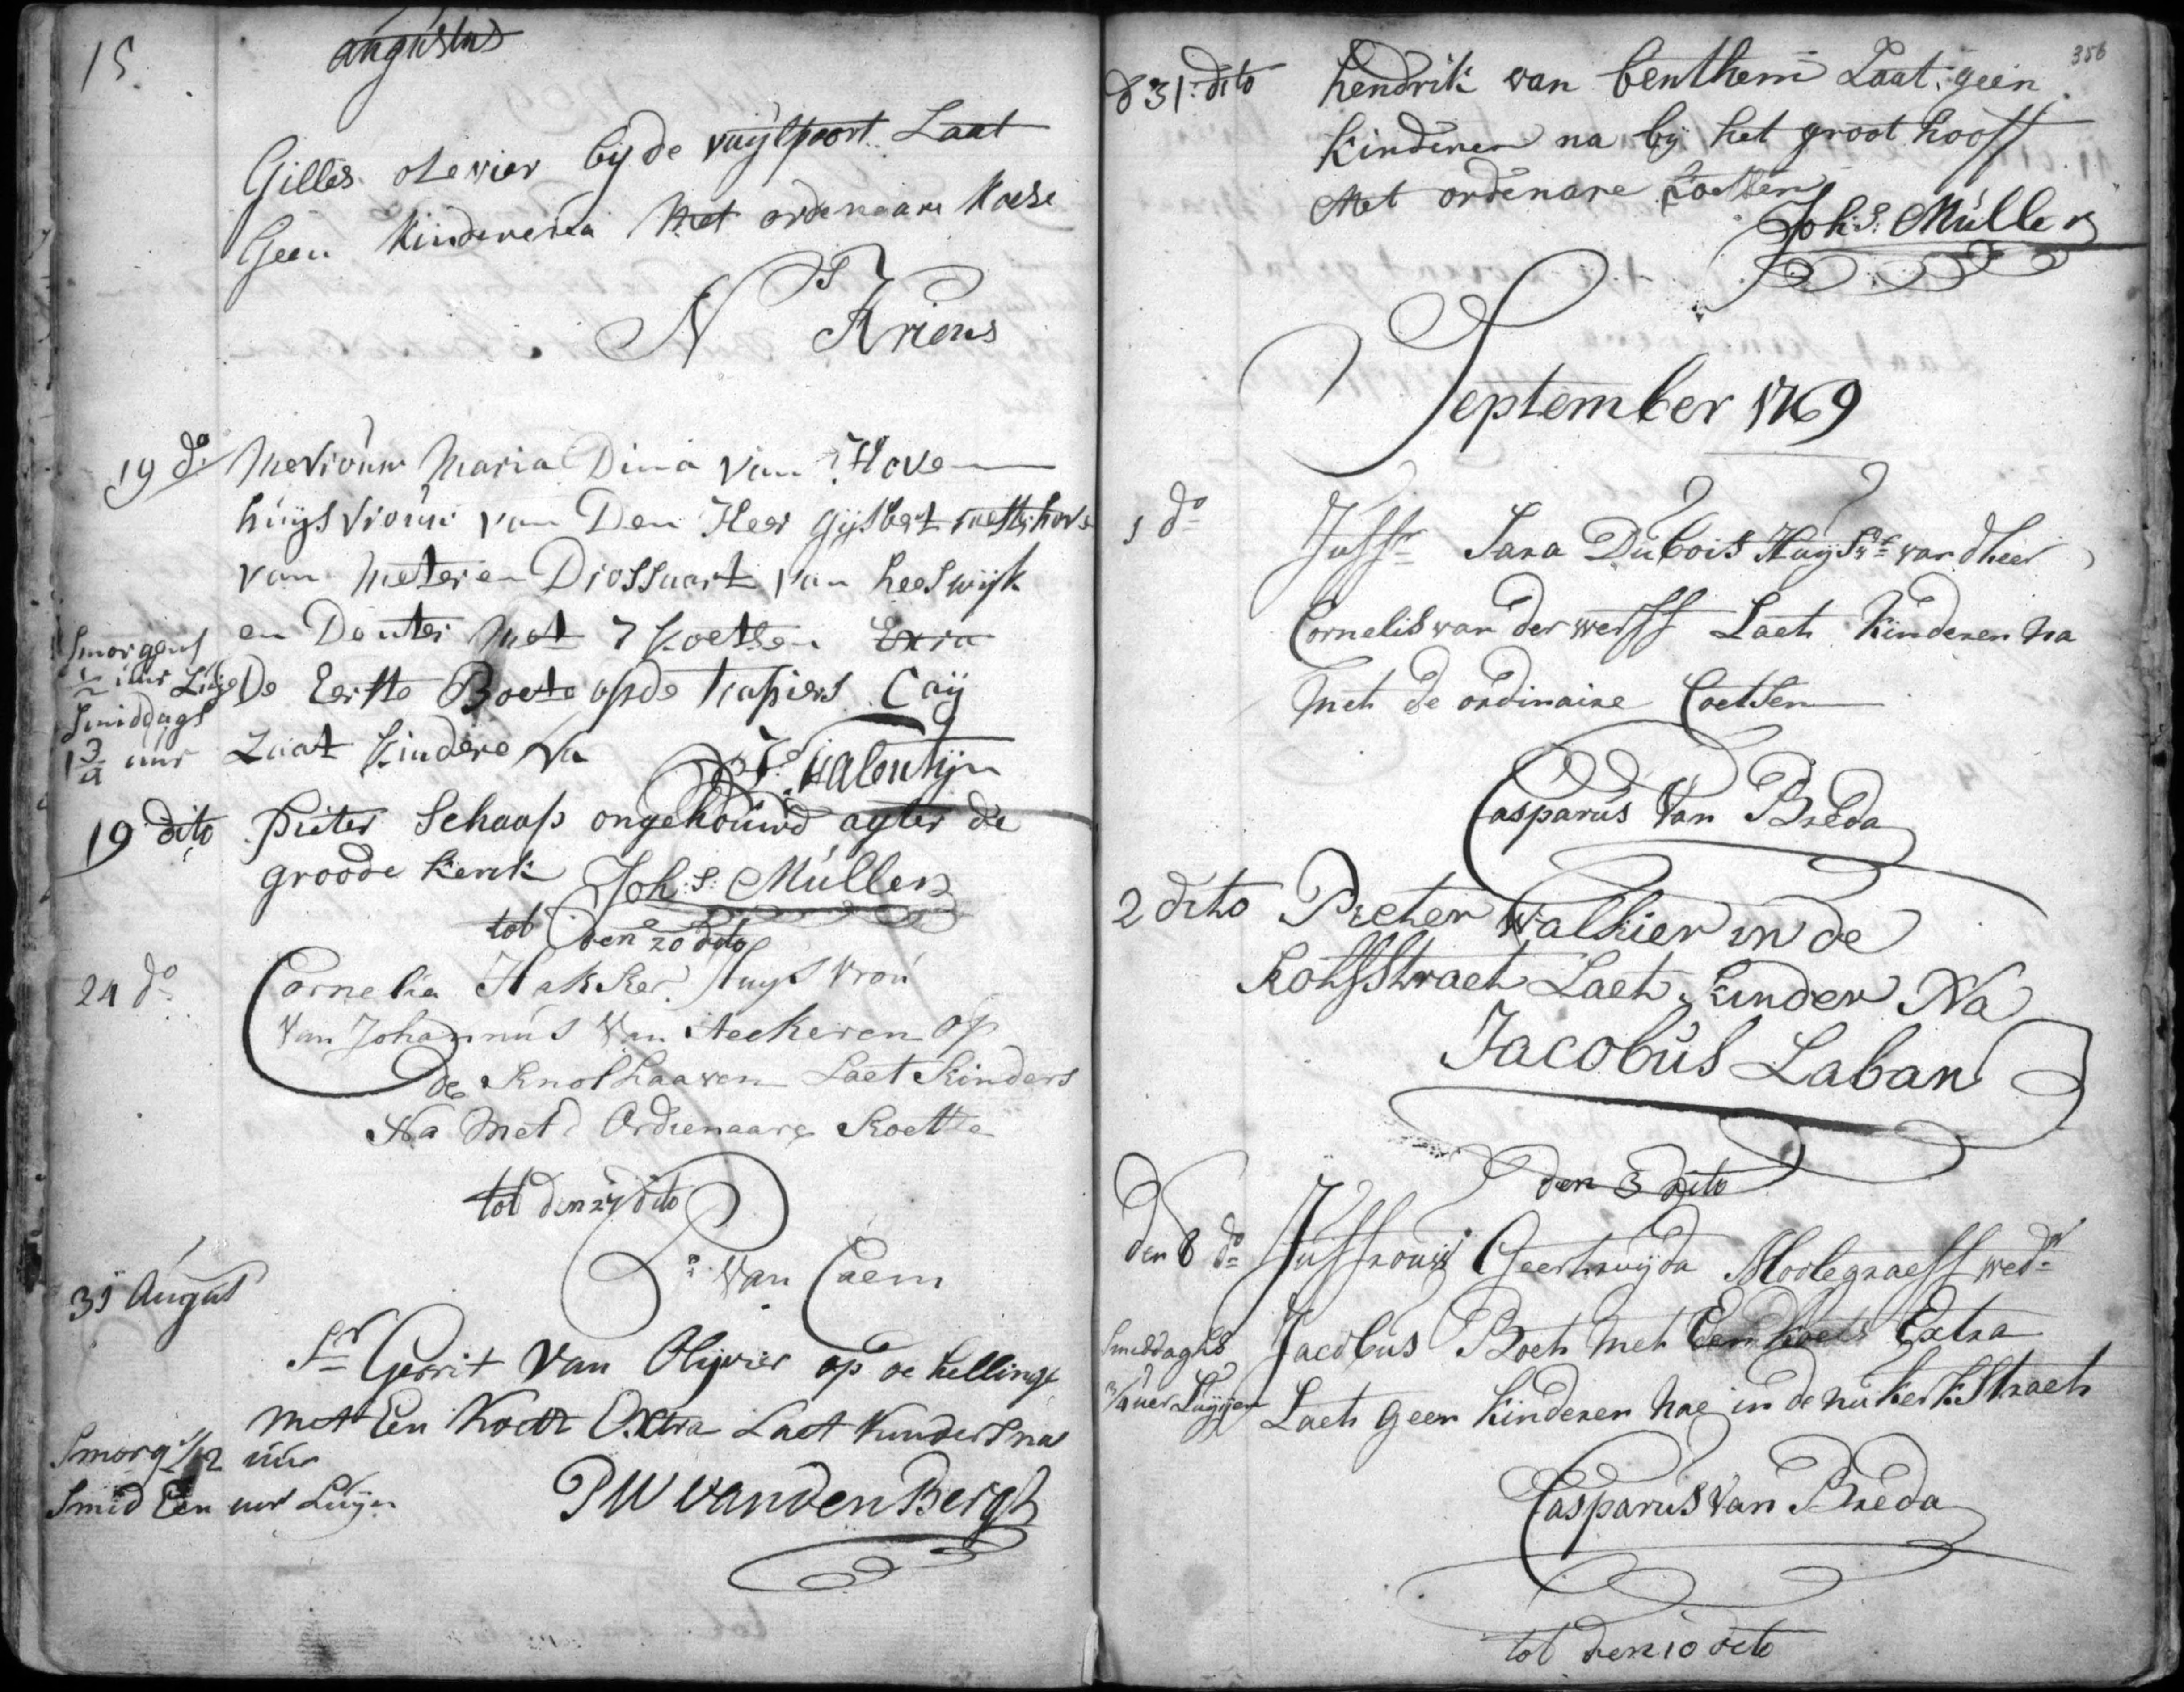 augustus
15.
Gilles olevier bij de vuijlpoort Laat
Geen Kinderen na Met ordenaare Koese
N Kriens
19 do Mevrouw Maria Dina van Hove
huijsvrouw van Den Heer Gijsbert
van Meteren Drossaart van Heeswijk
en Donter Met 7 Koetsen Exra
Smorgens
½ uur Luije De Eerste Boete op de Kaij
Smiddags
1¾ uur Laat Kindere Na
Valentijn
19 dito Pieter Schaap ongehouwd agter de
groode kerck Joh: S: Müller
tot den 20 dito
24 do Cornelia Hakker Huijs vrou
Van Johannus Van Neckeren op
de Knolhaaven Laet Kinders
Na Met Ordienaare Koetse
tot den 27 dito
P: Van Caem
31 Augus
Sr Gerrit Van Olijvier op de hellinge
Met Een Koets Extra Laet Kinders na
Smorg ½ uur
Smid Een uur Luijen
P W van den Bergh
356
d 31: dito hendrik van benthem Laat geen
Kinderen na bij het groot hooft
Met ordenare Koetsen
Joh: S: Müller
September 1769
1 do Juffr Sara Dubois Huijsvr van dheer
Cornelis van der werff Laet Kinderen na
Met de ordinaire Coetsen
Casparus Van Breda
2 dito Pieter Walkier in de
Kolfstraet Laet Kinder Na
Jacobus Laban
den 3 dito
den 8 do Juffrouw Geertruijda Moolegraeff wedr
Jacobus Boet Met Een Koets Extra
Smiddaghs
¾ uer Luijen Laet geen Kinderen nae in de nukerkstraet
Casparus Van Breda
tot den 10 dito